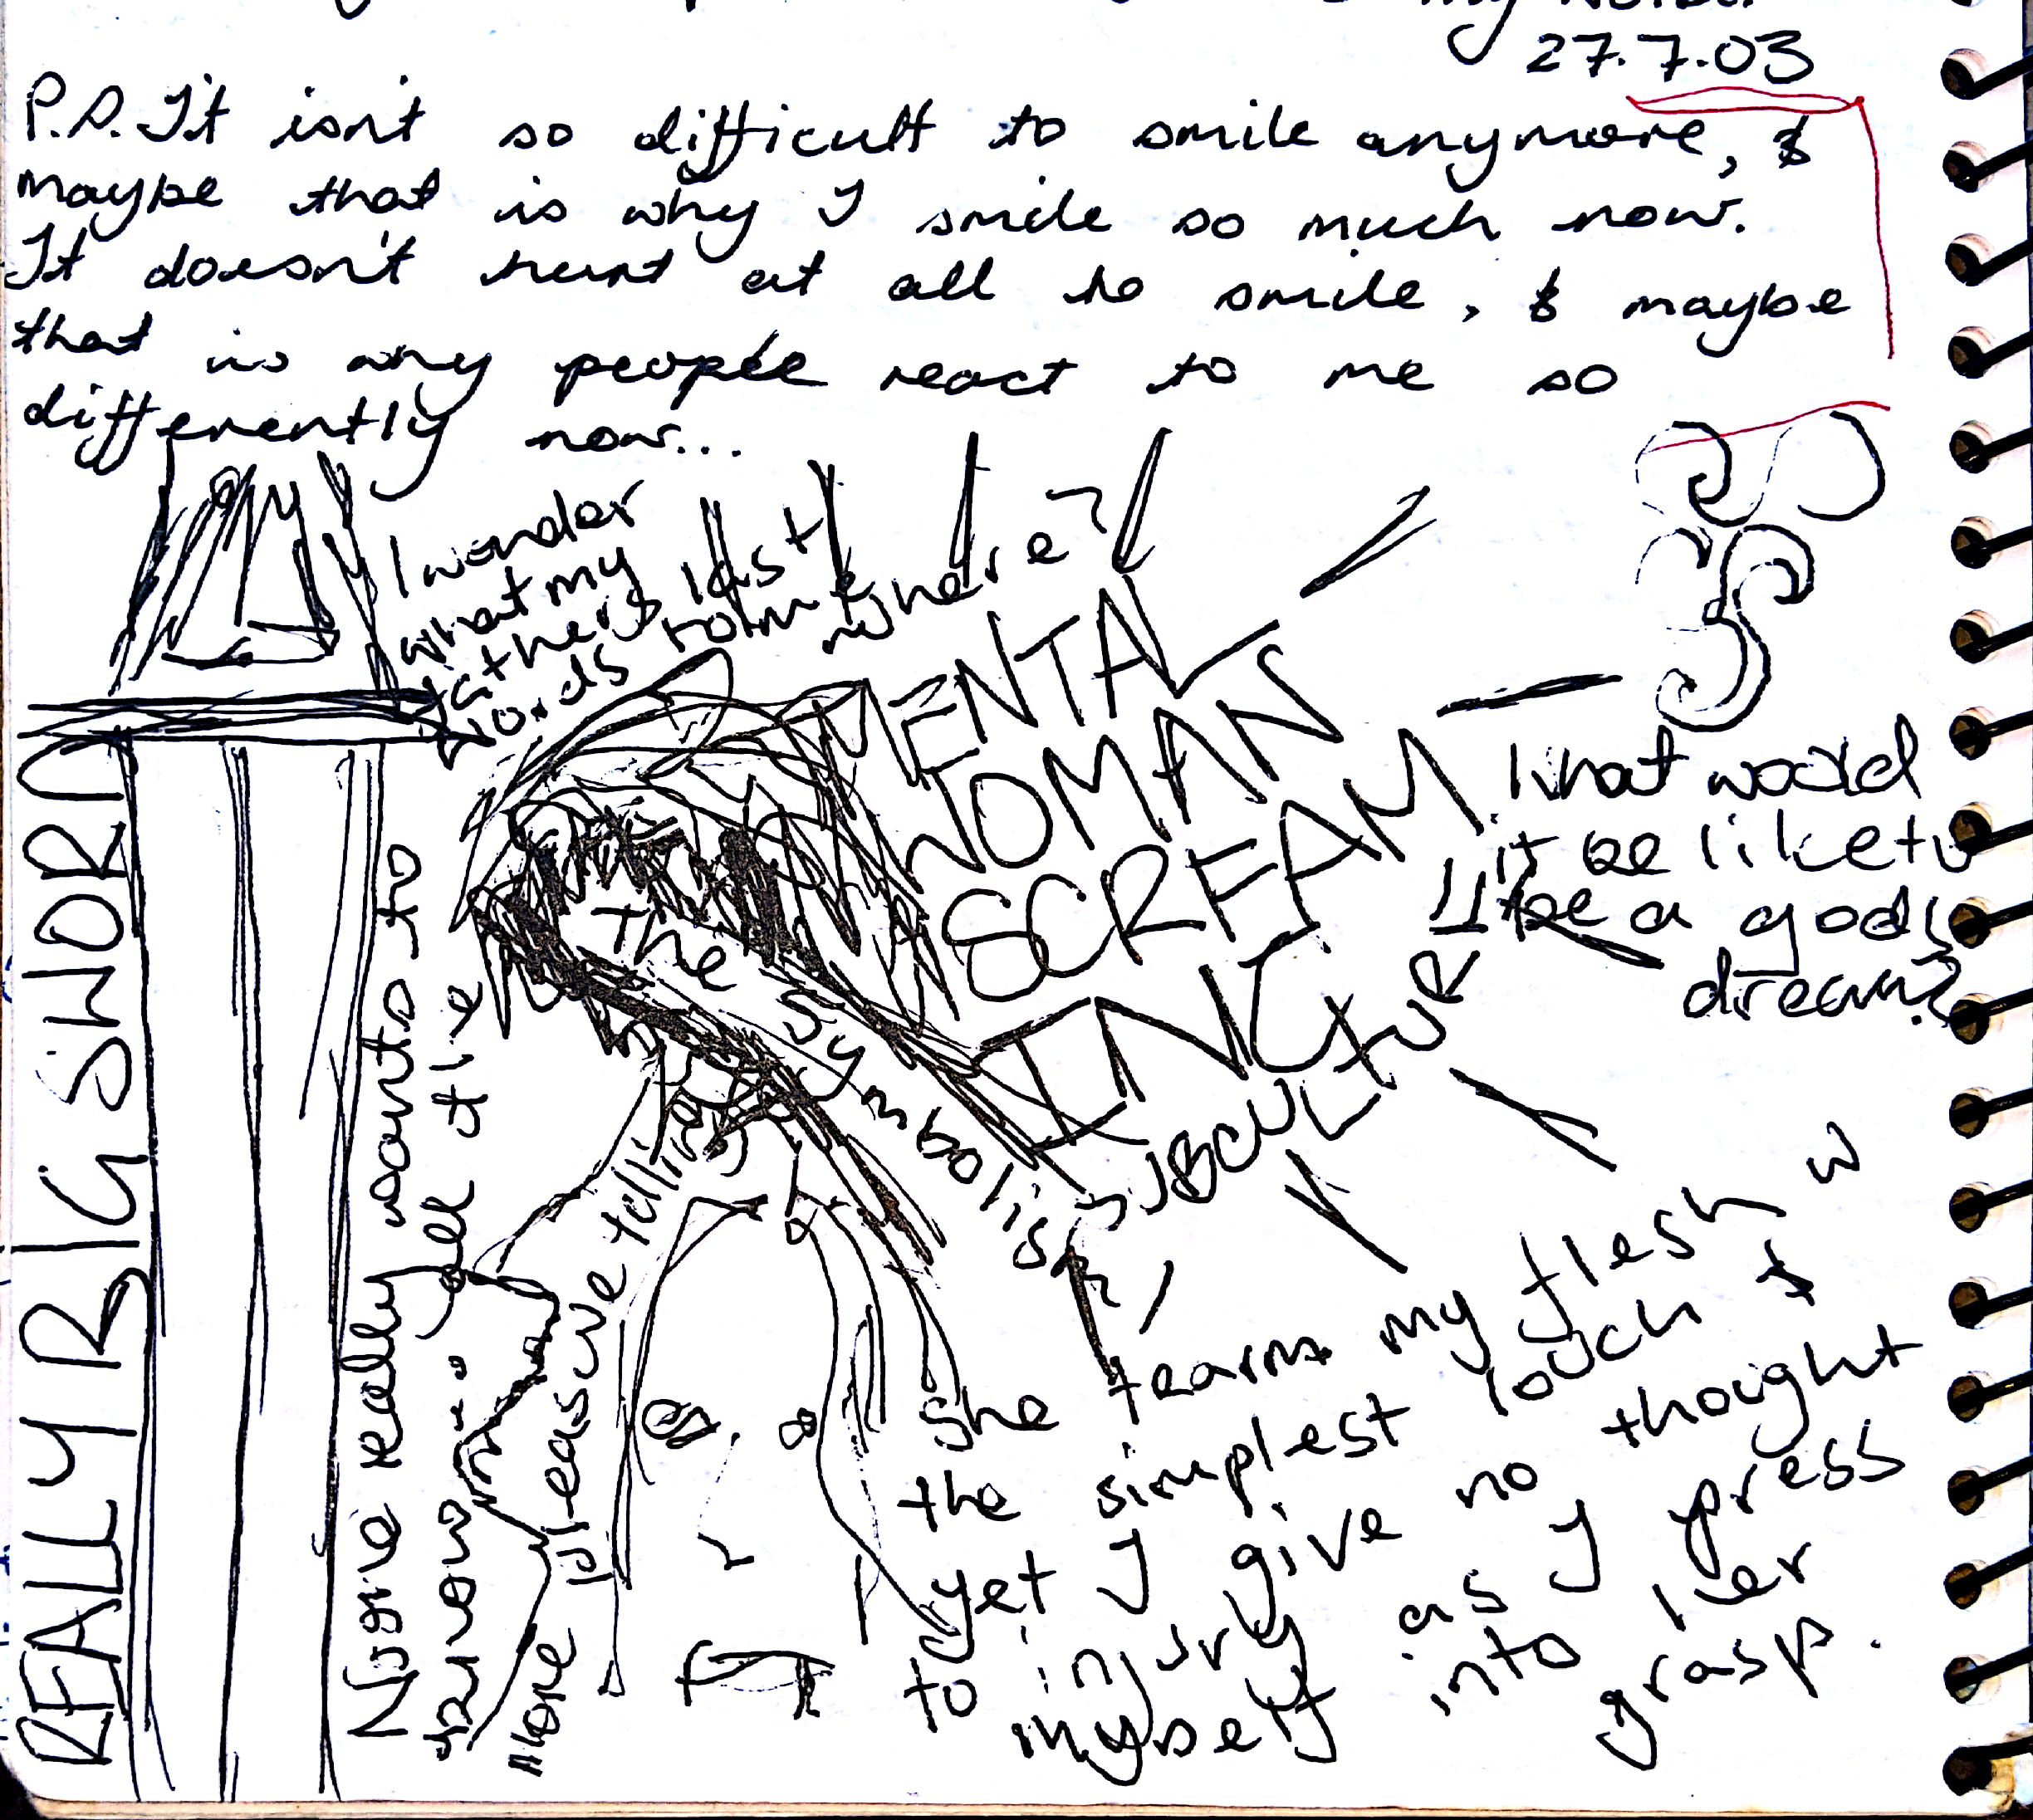 my
27.7.03
P.S. It isn't so difficult to smile anymore, &
maybe that is why I smile so much now.
It doesn't hurt at all to smile, & maybe
that is why people react to me so
differently now...
I wonder
what my
father's last
words to me
were?
MENTAL
WOMAN
SCREAM
ING
SUBCULTUR
What would
it be like to
like a god's
dream?
REALLY BIG SWORD
No one really wants to
see the
The symbolism
more pleasure telling
she tears my flesh w
the simplest touch &
yet I give no thought
to injury as I press
myself into her
grasp.